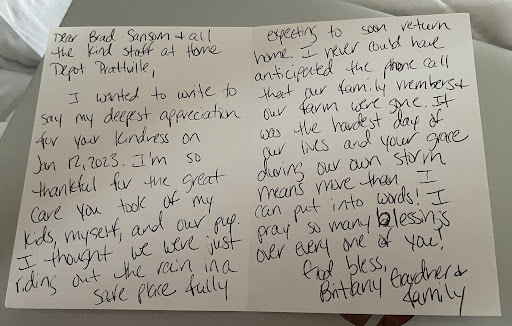 Dear Brad Sansom & all
the kind staff at Home
Depot Prattville,
I wanted to write to
say my deepest appreciation
for your kindness on
Jan 12, 2023. I'm so
thankful for the great
care you took of my
kids, myself, and our pup.
I thought we were just
riding out the rain in a
safe place fully
expecting to soon return
home. I never could have
anticipated the phone call
that our family members &
our farm were gone. It
was the hardest day of
our lives and your grace
during our own storm
means more than I
can put into words! I
pray so many blessings
over every one of you!
God bless,
Brittany Gardner &
family